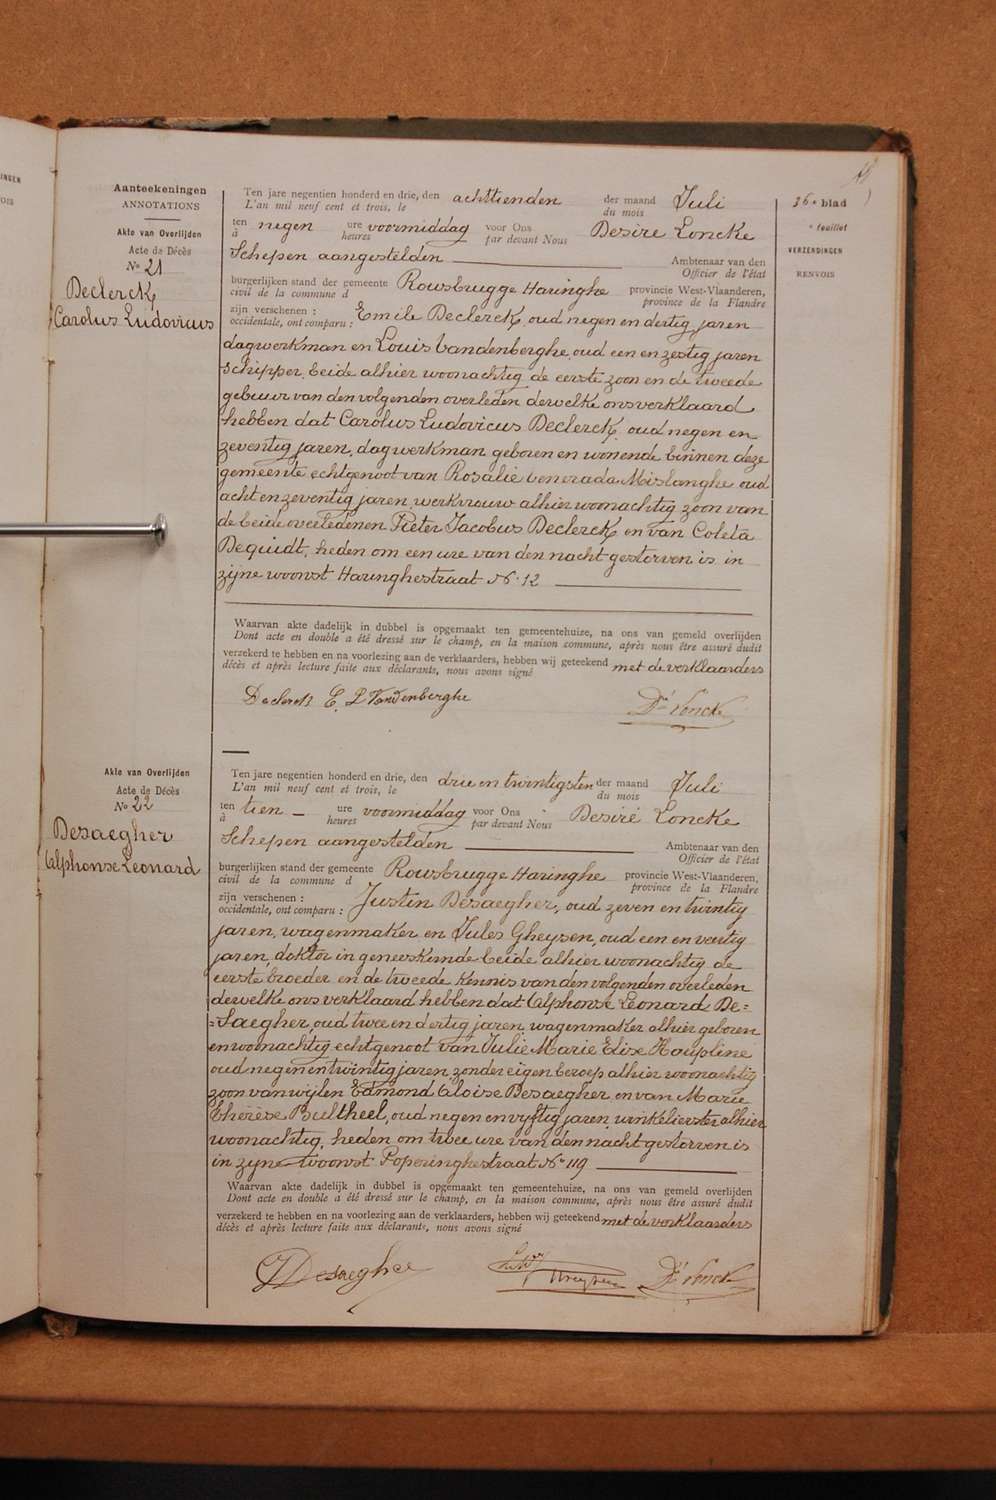 36e blad
e feuillet
VERZENDINGEN
RENVOIS
Aanteekeningen
ANNOTATIONS
Akte van Overlijden
Acte de Décès
No 21
Declerck
Carolus Ludovicus
Ten jare negentien honderd en drie, den achttienden der maand Juli
L'an mil neuf cent et trois, le du mois
ten negen ure voormiddag voor Ons Desiré Loncke
à heures par devant Nous
Schepen aangestelden Ambtenaar van den
Officier de l'état
burgerlijken stand der gemeente Rousbrugge Haringhe provincie West-Vlaanderen,
civil de la commune d province de la Flandre
zijn verschenen : Emile Declerck, oud negen en dertig jaren
occidentale, ont comparu :
dagwerkman en Louis Vandenberghe, oud een en zestig jaren
schipper, beide alhier woonachtig de eerste zoon en de tweede
gebuur van den volgenden overleden derwelke ons verklaard
hebben dat Carolus Ludovicus Declerck, oud negen en
zeventig jaren, dagwerkman geboren en wonende binnen deze
gemeente echtgenoot van Rosalie Venerada Mislanghe oud
acht en zeventig jaren, werkvrouw alhier woonachtig zoon van
de beide overledenen Pieter Jacobus Declerck en van Coleta
Dequidt, heden om een ure van den nacht gestorven is in
zijne woonst Haringhestraat No 12
Waarvan akte dadelijk in dubbel is opgemaakt ten gemeentehuize, na ons van gemeld overlijden
Dont acte en double a été dressé sur le champ, en la maison commune, après nous être assuré dudit
verzekerd te hebben en na voorlezing aan de verklaarders, hebben wij geteekend met de verklaarders
décès et après lecture faite aux déclarants, nous avons signé
Declerck E. L Vandenberghe Dé Loncke
Akte van Overlijden
Acte de Décès
No 22
Desaegher
Alphonse Leonard
Ten jare negentien honderd en drie, den drie en twintigsten der maand Juli
L'an mil neuf cent et trois, le du mois
ten tien ure voormiddag voor Ons Desiré Loncke
à heures par devant Nous
Schepen aangestelden Ambtenaar van den
Officier de l'état
burgerlijken stand der gemeente Rousbrugge Haringhe provincie West-Vlaanderen,
civil de la commune d province de la Flandre
zijn verschenen : Justin Desaegher, oud zeven en twintig
occidentale, ont comparu :
jaren, wagenmaker en Jules Gheysen, oud een en veertig
jaren, doktor in geneeskunde beide alhier woonachtig de
eerste broeder en de tweede kennis van den volgenden overleden
derwelke ons verklaard hebben dat Alphonse Leonard De=
=Saegher, oud twee en dertig jaren, wagenmaker alhier geboren
en woonachtig echtgenoot van Julie Marie Elise Houpline
oud negen en twintig jaren zonder eigen beroep alhier woonachtig
zoon van wijlen Edmond Aloise Desaegher en van Marie
Thérèse Bultheel, oud negen en vyftig jaren, winkelierster alhier
woonachtig, heden om twee ure van den nacht gestorven is
in zijne woonst Poperinghestraat No 119
Waarvan akte dadelijk in dubbel is opgemaakt ten gemeentehuize, na ons van gemeld overlijden
Dont acte en double a été dressé sur le champ, en la maison commune, après nous être assuré dudit
verzekerd te hebben en na voorlezing aan de verklaarders, hebben wij geteekend met de verklaarders
décès et après lecture faite aux déclarants, nous avons signé
J Desaegher Gheysen Dé Loncke